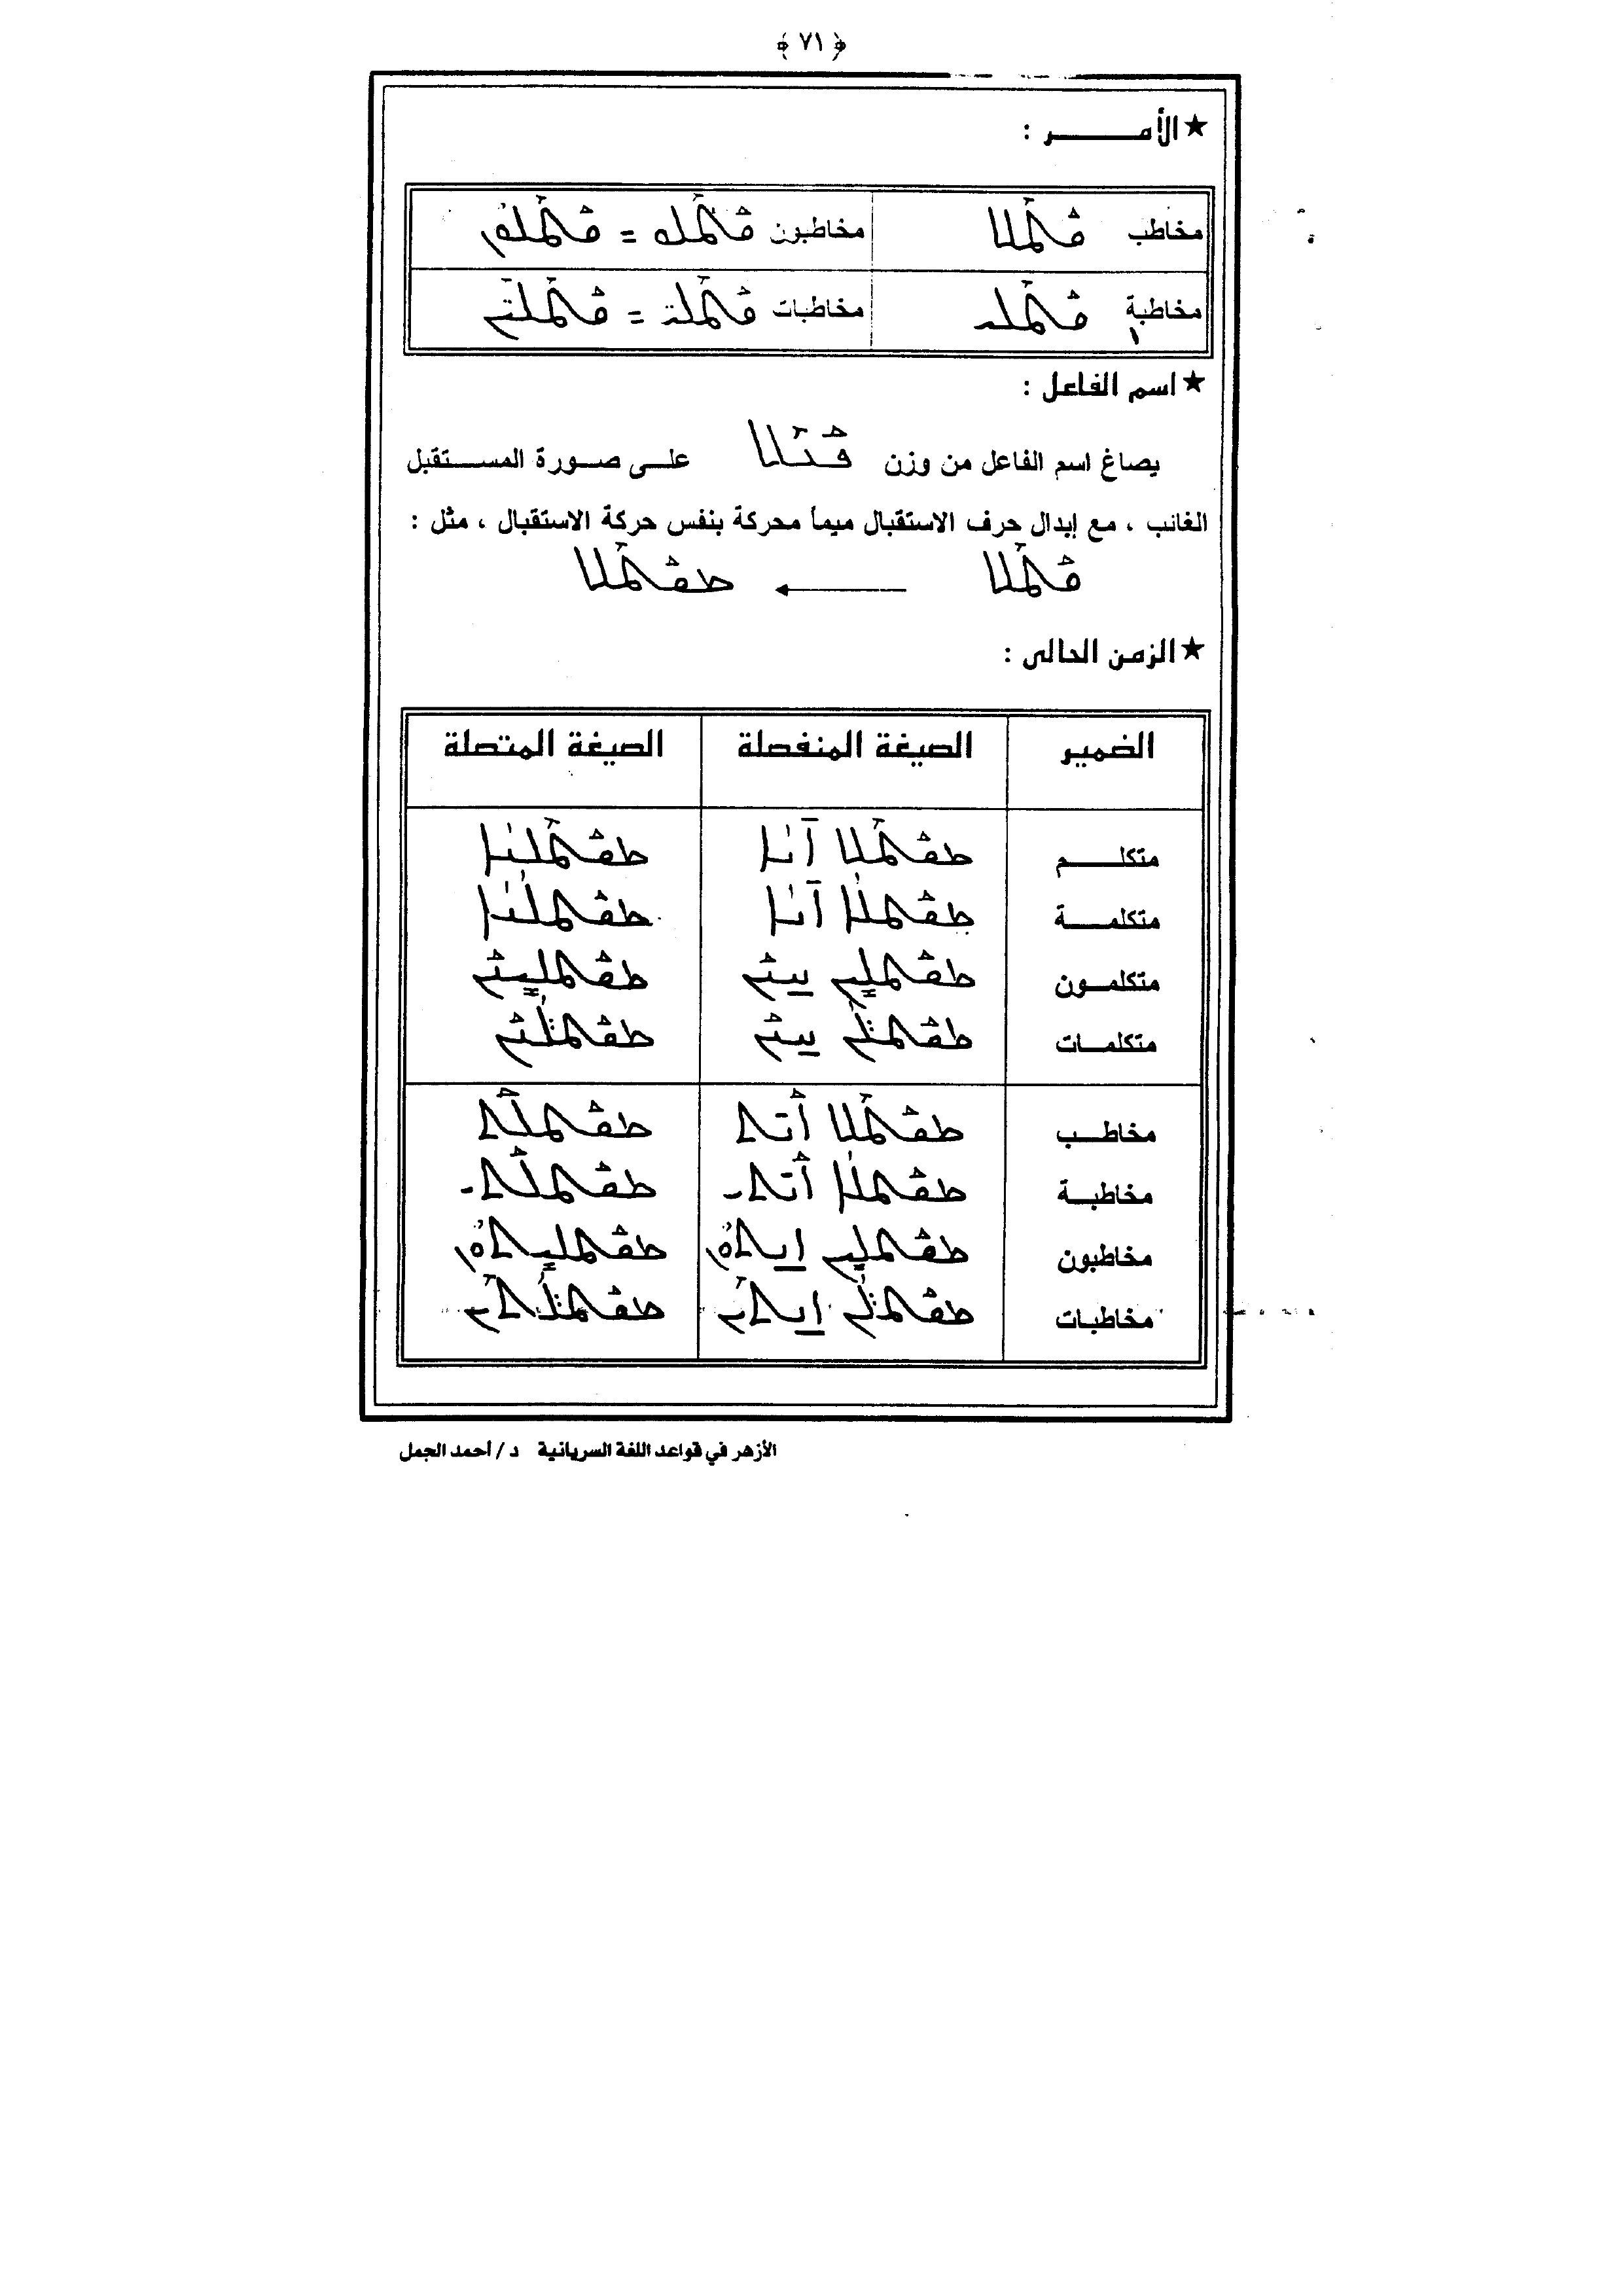 ﴿ ٧١ ﴾
★ الأمـــــر :
مخاطب ܩܰܛܶܠ مخاطبون ܩܰܛܶܠܘ = ܩܰܛܶܠܘܽܢ
مخاطبة ܩܰܛܶܠܝ مخاطبات ܩܰܛܶܠܝ̈ = ܩܰܛܶܠܶܝܢ
★ اسم الفاعل :
يصاغ اسم الفاعل من وزن ܩܰܒܶܠ علــى صــورة المســتقبل
الغائب ، مع إبدال حرف الاستقبال ميماً محركة بنفس حركة الاستقبال ، مثل :
ܩܰܛܶܠ ← ܡܩܰܛܶܠ
★ الزمن الحالى :
الضمير الصيغة المنفصلة الصيغة المتصلة
متكلـــم ܡܩܰܛܶܠ ܐ̱ܢܳܐ ܡܩܰܛܶܠܢܳܐ
متكلمـــة ܡܩܰܛܠܳܐ ܐ̱ܢܳܐ ܡܩܰܛܠܳܢܳܐ
متكلمــون ܡܩܰܛܠܺܝܢ ܚ̱ܢܰܢ ܡܩܰܛܠܺܝܢܰܢ
متكلمــات ܡܩܰܛܠܳ̈ܢ ܚ̱ܢܰܢ ܡܩܰܛܠܳ̈ܢܰܢ
مخاطــب ܡܩܰܛܶܠ ܐܰܢ̱ܬ ܡܩܰܛܠܰܬ
مخاطبــة ܡܩܰܛܠܳܐ ܐܰܢ̱ܬܝ ܡܩܰܛܠܰܬܝ
مخاطبون ܡܩܰܛܠܺܝܢ ܐܢ̱ܬܘܽܢ ܡܩܰܛܠܺܝܬܘܽܢ
مخاطبات ܡܩܰܛܠܳ̈ܢ ܐܢ̱ܬܶܝܢ ܡܩܰܛܠܳ̈ܬܶܝܢ
الأزهر في قواعد اللغة السريانية د/ أحمد الجمل